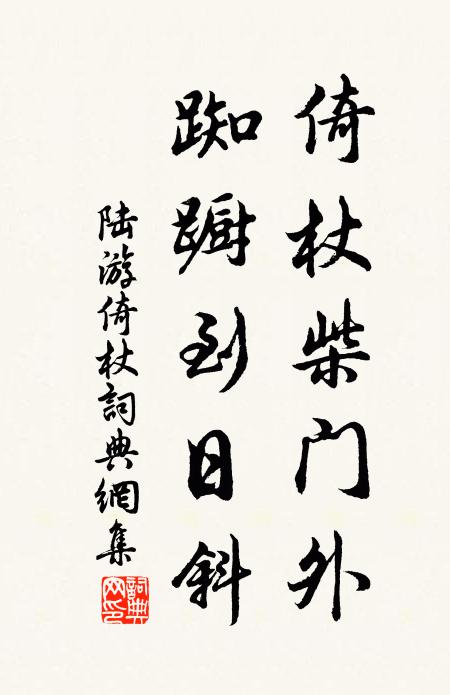 倚杖柴门外
踟蹰到日斜
陆游倚杖詞典網集
詞典网印